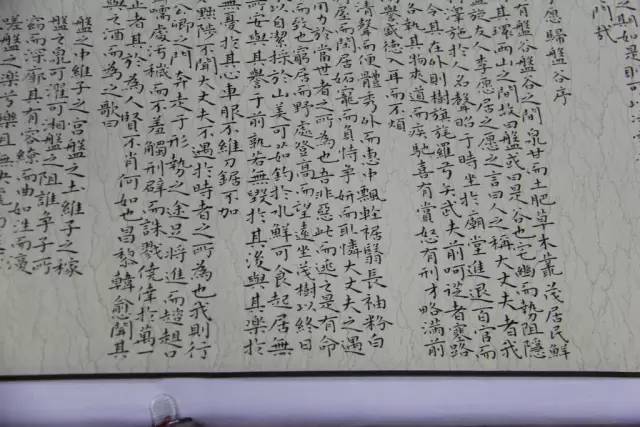 之馳如是則可
門哉
愿歸盤谷序
有盤谷盤谷之間泉甘而土肥草木叢茂居民鮮
其環兩山之間故曰盤或曰是谷也宅幽而勢阻隱
盤旋友人李愿居之愿之言曰人之稱大丈夫者我
澤施於人名聲昭于時坐於廟堂進退百官而
令其在外則樹旗旄羅弓矢武夫前呵從者塞路
各執其物夾道而疾馳喜有賞怒有刑才略滿前
譽盛德入耳而不煩
清聲而便體秀外而惠中飄輕裾翳長袖粉白
屋而閑居妬寵而負恃爭妍而取憐大丈夫之遇
用力於當世者之所為也吾非惡此而逃之是有命
而致也窮居而野處登高而望遠坐茂樹以終日
以自潔採於山美可茹釣於水鮮可食起居無
安與其譽于前孰若無毀於其後與其樂於
無憂於其心車服不維刀鋸不加
黜陟不聞大丈夫不遇於時者之所為也我則行
公卿之門奔走于形勢之途足將進而趑趄口
囁嚅處汙穢而不羞觸刑辟而誅戮僥倖於萬一
止者其於為人賢不肖何如也昌黎韓愈聞其
與之酒而為之歌曰
盤之中維子之宮盤之土維子之稼
盤泉可濯可湘盤之阻誰爭子所
窈而深廓其有容繚而曲如往而復
嗟盤之樂兮樂且無央